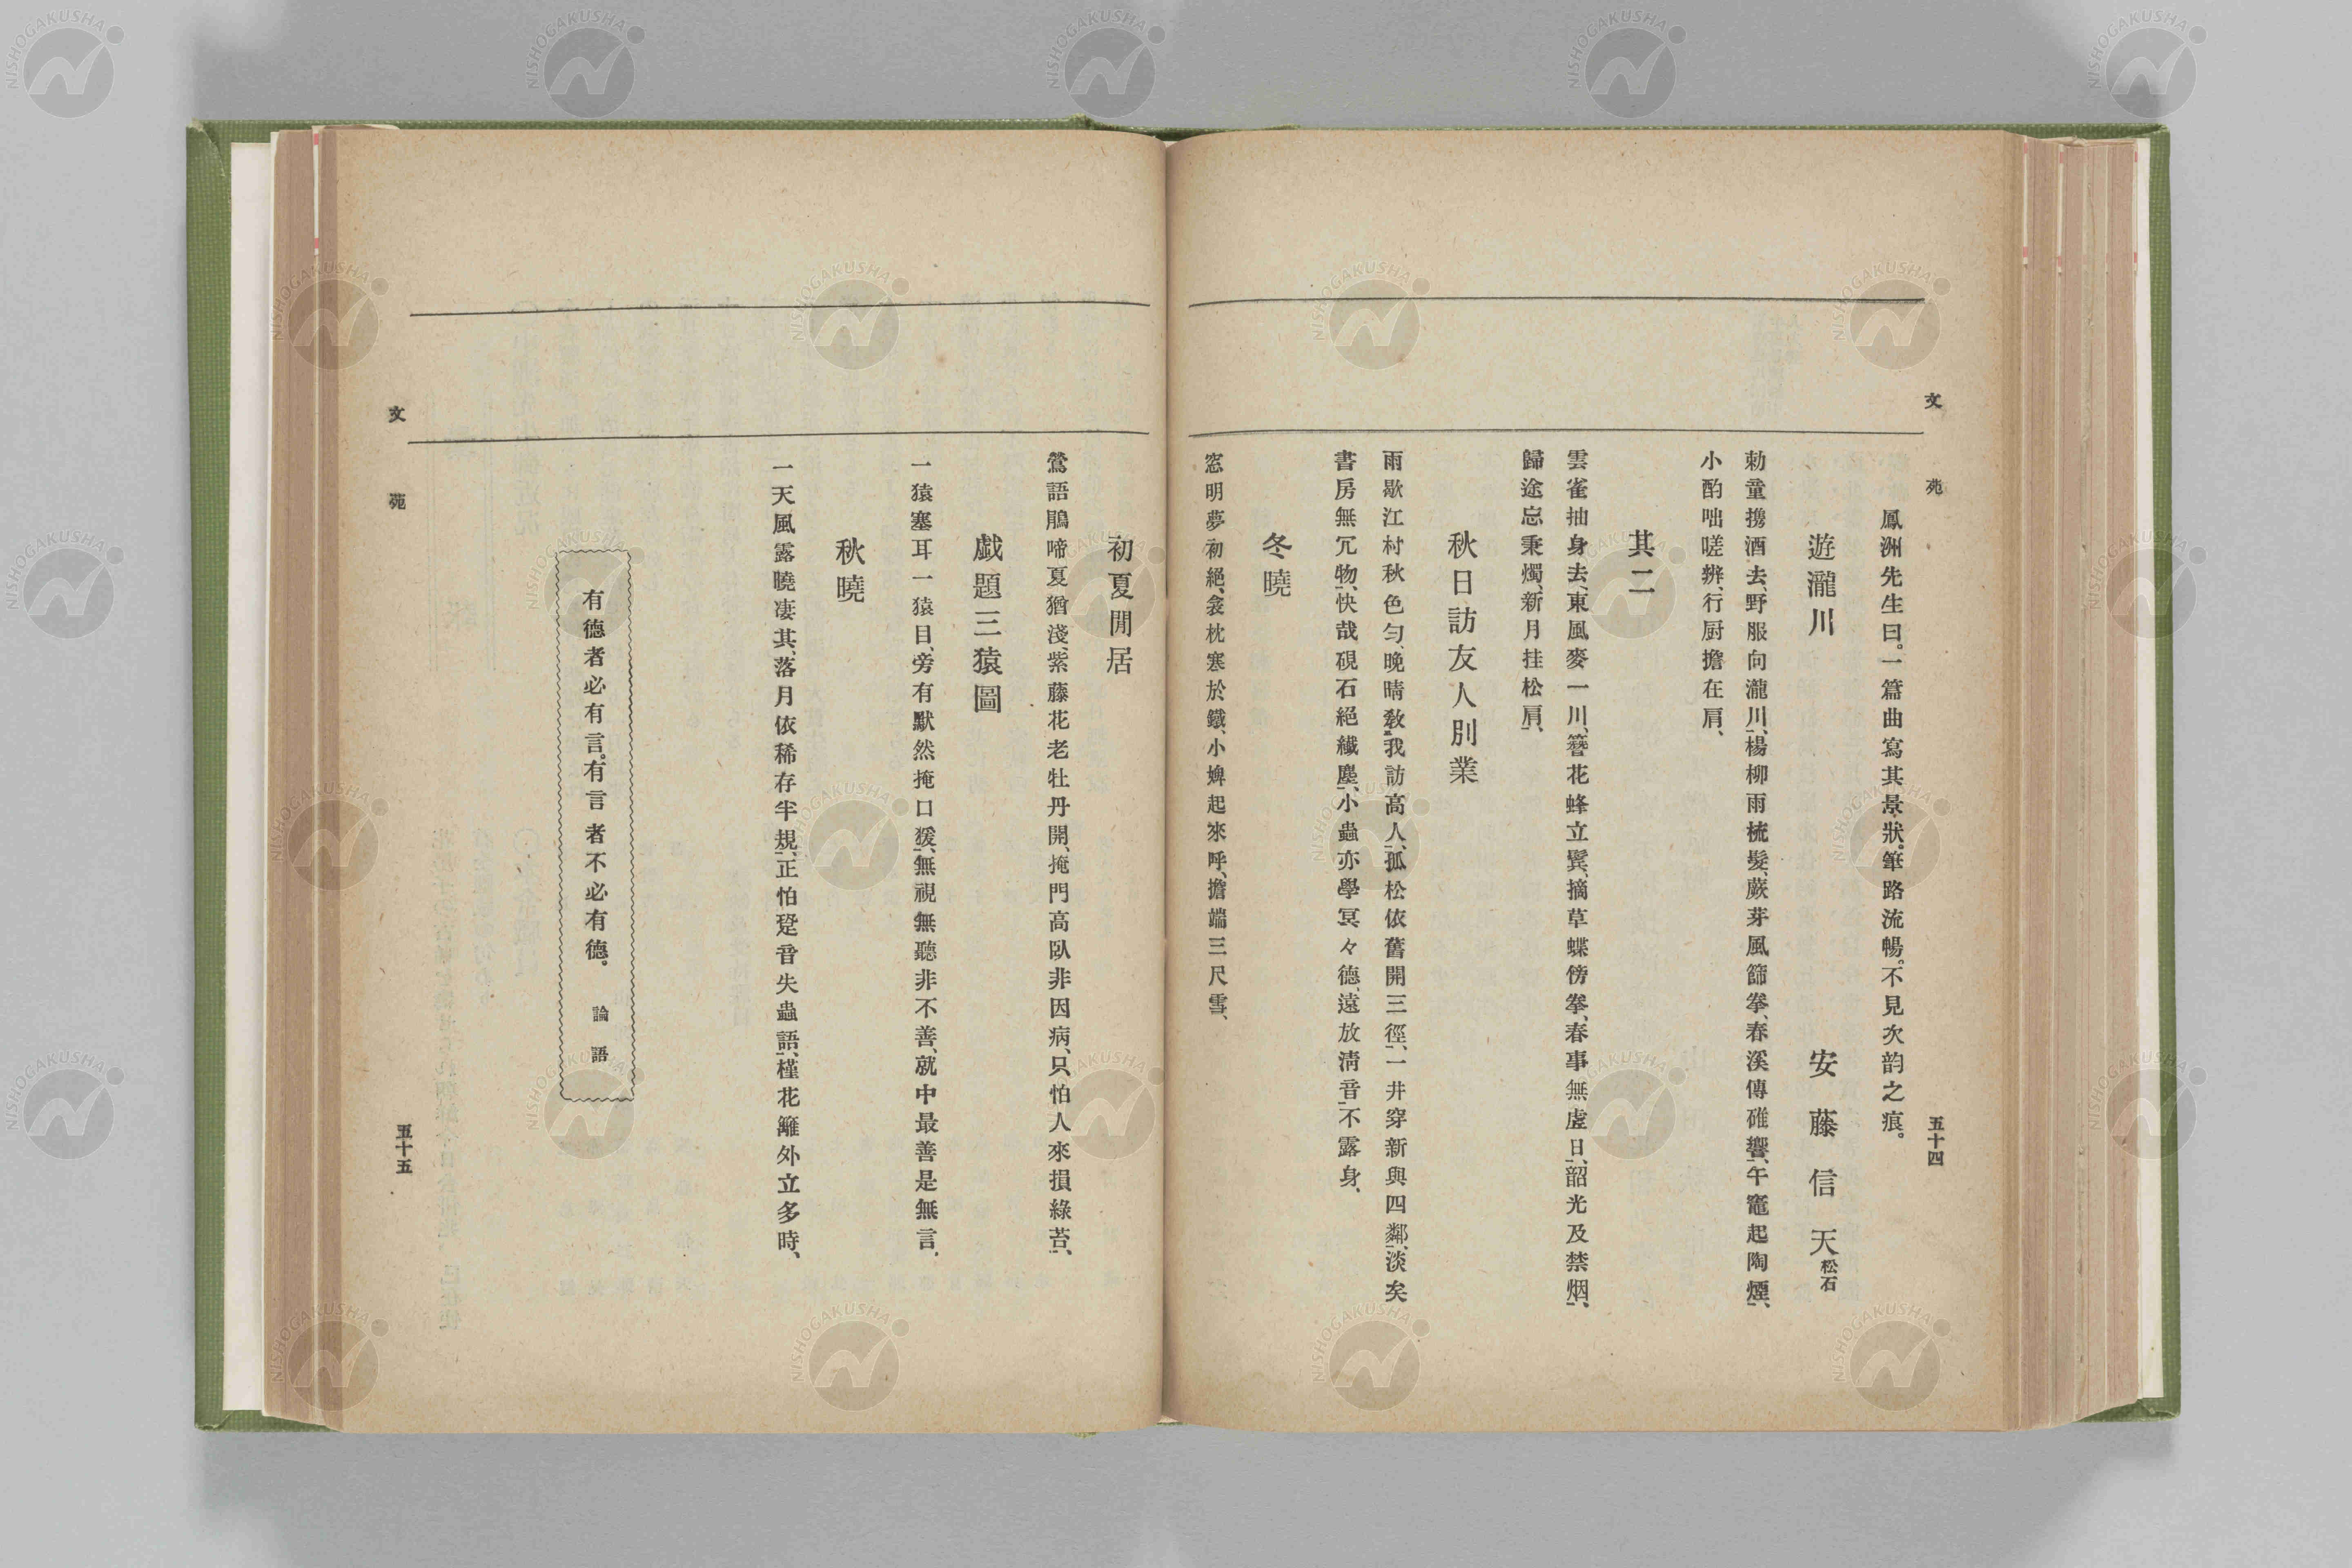 文苑
五十四
鳳洲先生曰。一篇曲寫其景狀。筆路流暢。不見次韵之痕。
遊瀧川
安藤信天松石
勅童携酒去、野服向瀧川、楊柳雨梳髮、蕨芽風篩拳、春溪傳碓響、午竈起陶煙、
小酌咄嗟辨、行厨擔在肩、
其二
雲雀抽身去、東風麥一川、簪花蜂立鬂、摘草蝶傍拳、春事無虛日、韶光及禁烟、
歸途忘秉燭、新月挂松肩、
秋日訪友人別業
雨歇江村秋色匀、晚晴敎我訪高人、孤松依舊開三徑、一井穿新與四鄰、淡矣
書房無冗物、快哉硯石絕纎塵、小蟲亦學冥々德、遠放淸音不露身、
冬曉
窓明夢初絕、衾枕寒於鐵、小婢起來呼、擔端三尺雪、
初夏閒居
鶯語鵑啼夏猶淺、紫藤花老牡丹開、掩門高臥非因病、只怕人來損綠苔、
戯題三猿圖
一猿塞耳一猿目、旁有默然掩口猨、無視無聽非不善、就中最善是無言、
秋曉
一天風露曉凄其、落月依稀存半規、正怕跫音失蟲語、槿花籬外立多時、
有德者必有言。有言者不必有德。 論語
文苑
五十五
NISHOGAKUSHA